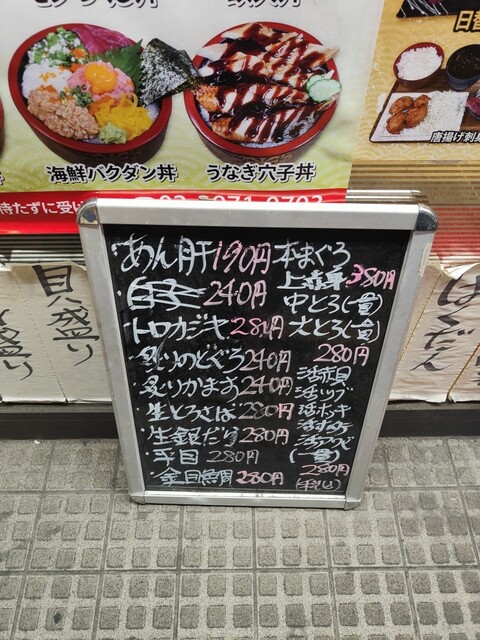 海鮮バクダン丼
うなぎ穴子丼
唐揚げ刺身
あん肝190円
白子240円
トロカジキ280円
炙りのどぐろ240円
炙りかます240円
生とろさば280円
生銀だら280円
平目280円
金目鯛280円
本まぐろ
上赤身380円
中とろ(一貫)
大とろ(一貫)
280円
活赤貝
活ツブ
活ホッキ
活アワビ
(一貫)
280円
(税込)
貝盛り